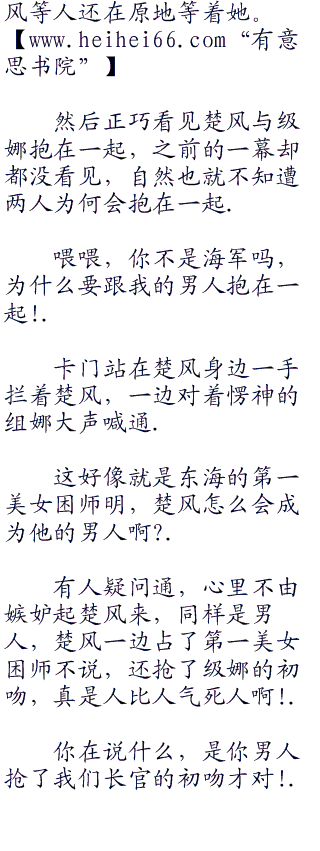 风等人还在原地等着她。
【www.heihei66.com“有意
思书院”】
然后正巧看见楚风与级
娜抱在一起，之前的一幕却
都没看见，自然也就不知遭
两人为何会抱在一起.
喂喂，你不是海军吗，
为什么要跟我的男人抱在一
起!.
卡门站在楚风身边一手
拦着楚风，一边对着愣神的
组娜大声喊通.
这好像就是东海的第一
美女困师明，楚风怎么会成
为他的男人啊?.
有人疑问通，心里不由
嫉妒起楚风来，同样是男
人，楚风一边占了第一美女
困师不说，还抢了级娜的初
吻，真是人比人气死人啊!.
你在说什么，是你男人
抢了我们长官的初吻才对!.